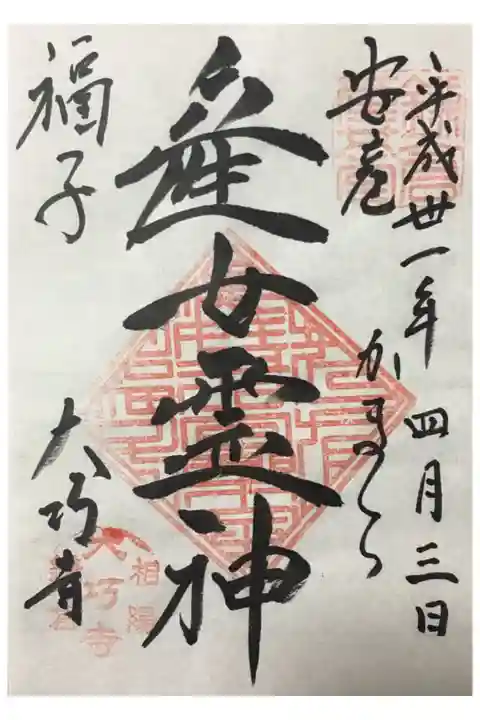 平成卅一年四月三日
安産
かまくら
産女霊神
福子
大巧寺
相陽
大巧寺